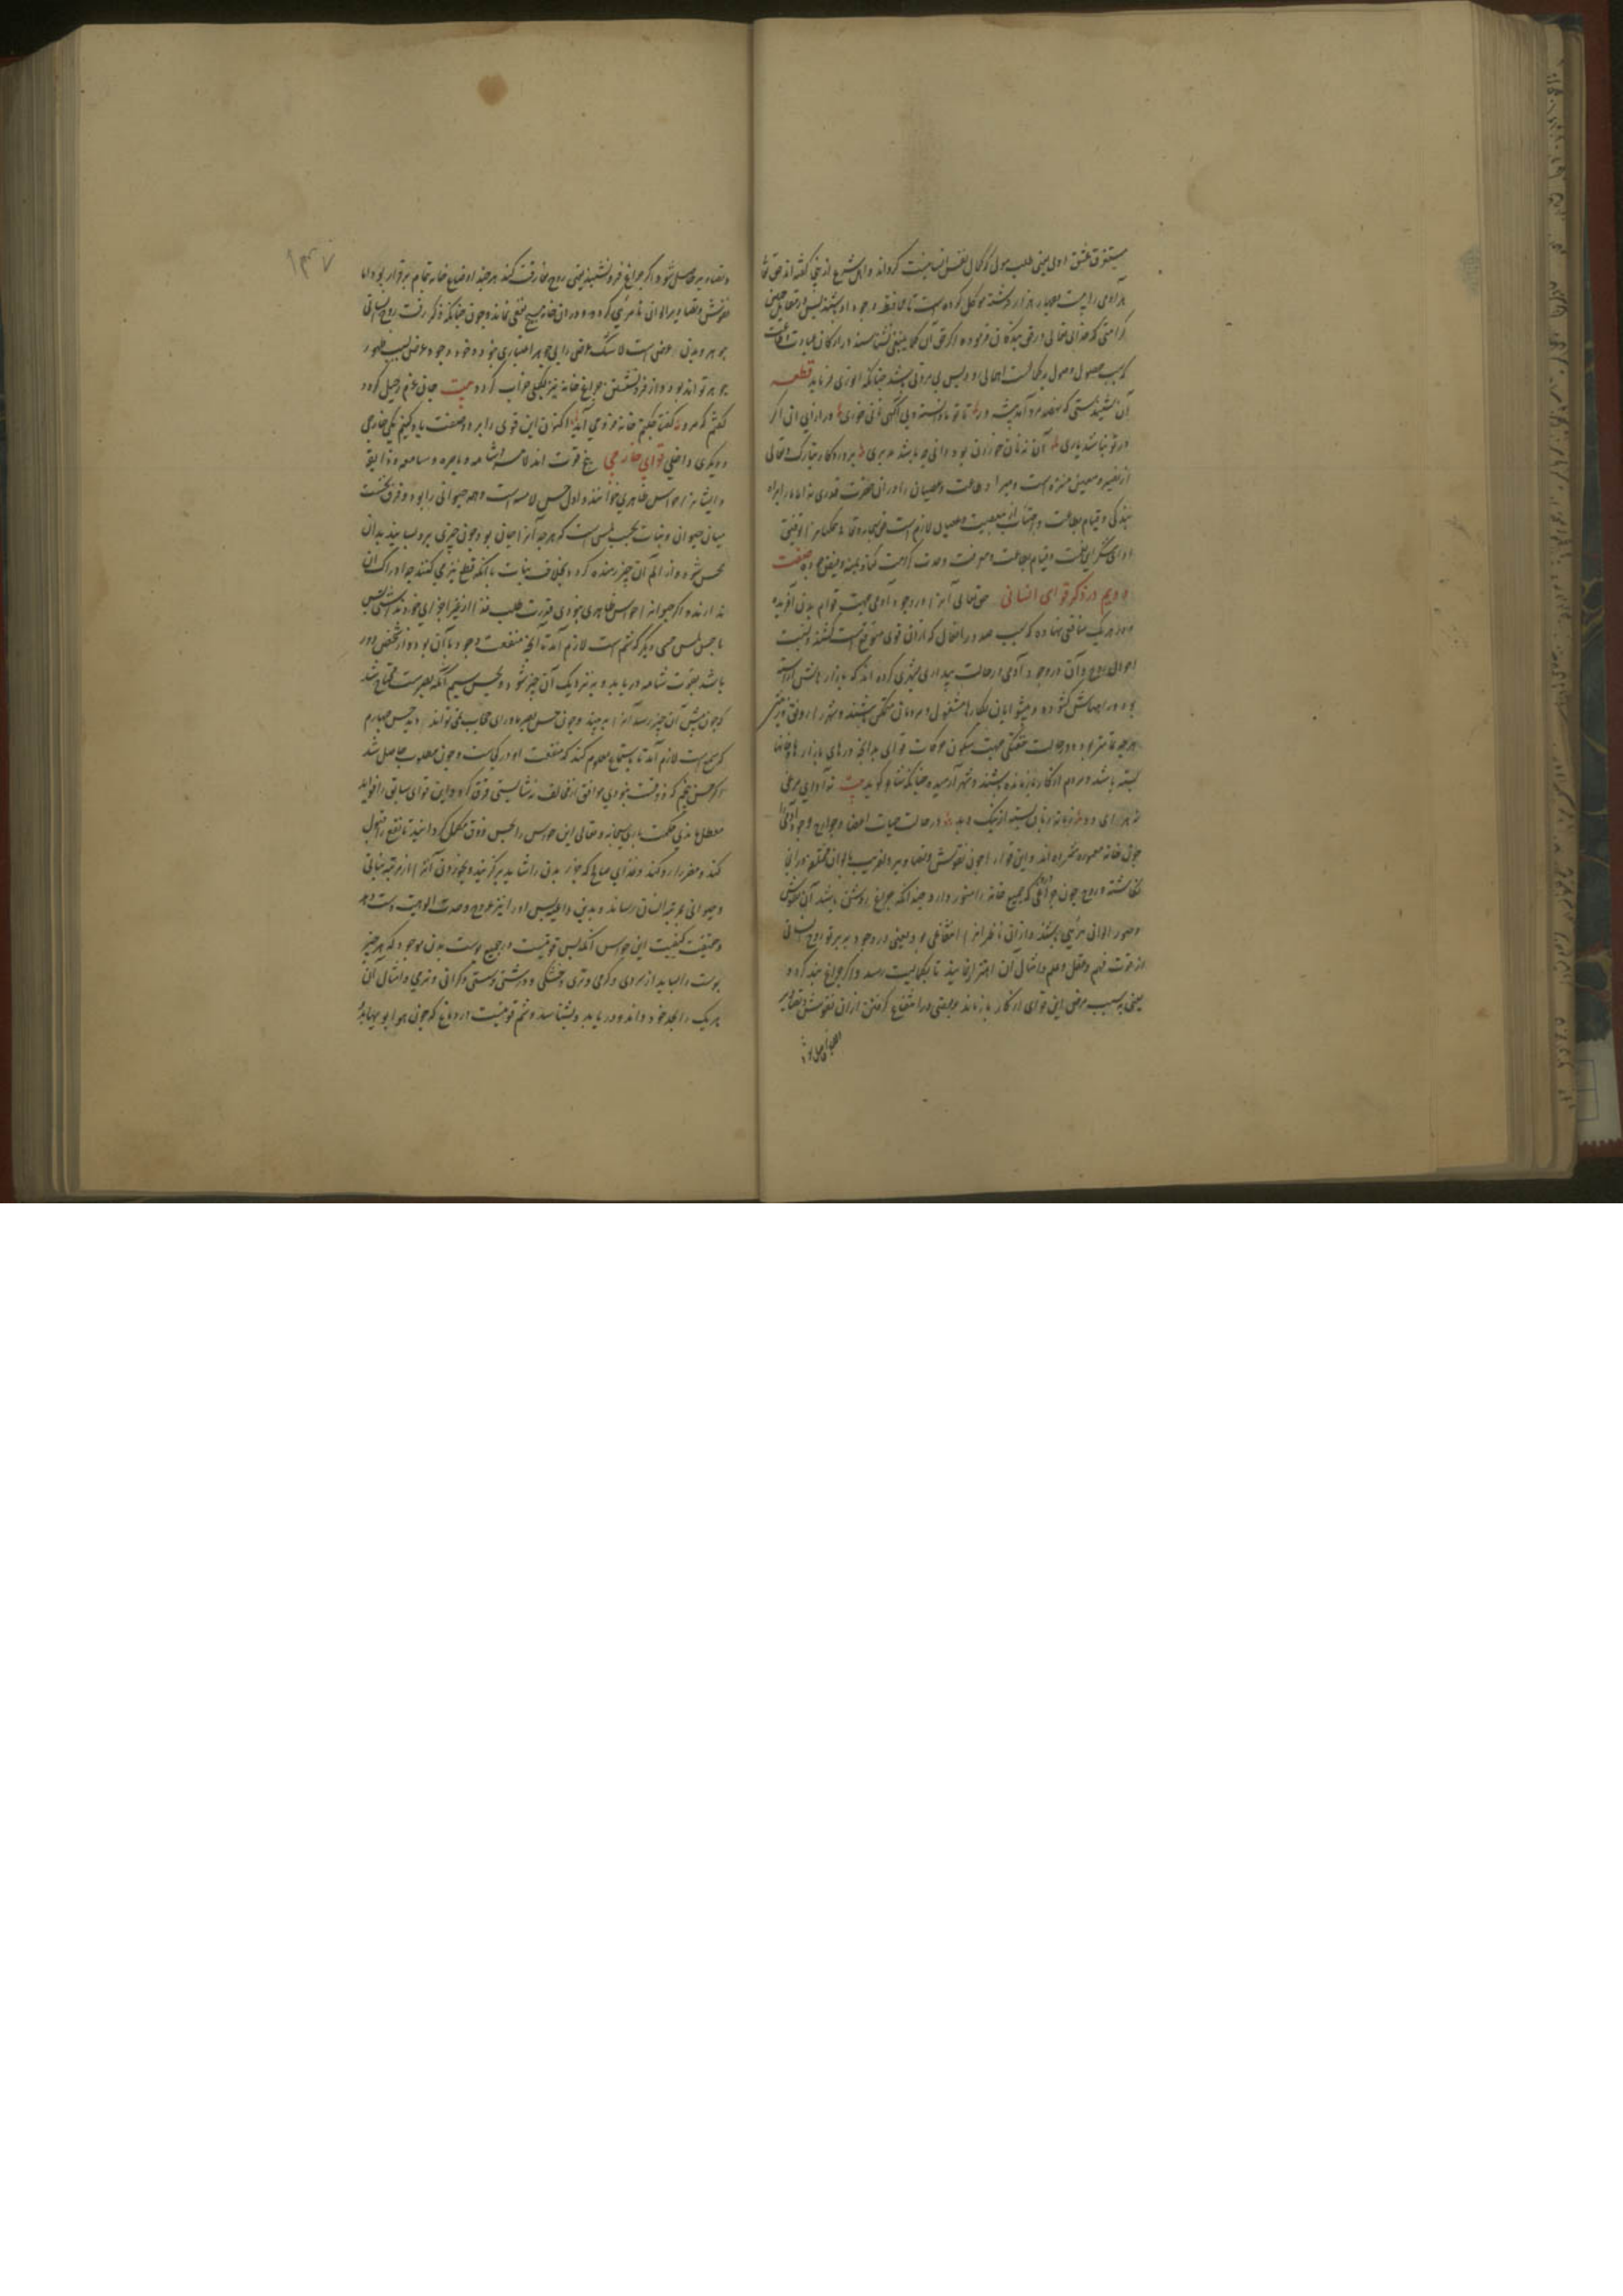 مستغرق عشق اولی یعنی طلب مولی که کمال نفس انسانیست کرداند و اهل شرع ازینجا گفته اند حق تعا
هر آدمی را بیست و چهار هزار فرشته موکل کرده است تا محافظه وجود او باشند پس در مقابل چنین
کرامتی که خدای تعالی در حق بندگان فرموده اگر حق آن کما ینبغی نشناسند و در ارکان عبادت و طاعت
که سبب حصول وصول بدان حالست اهمالی رود پس بی مروتی باشد چنانکه انوری فرماید قطعه
آن شنیدستی که نهصد مرد آید پیشه ور تا تو نادانسته و بی آگهی نانی خوری در ازای آن اگر
در تو نباشد یاری آن نه نان خوردن بود دانی چه باشد مدبری پروردگار تبارک و تعالی
از نصیر و معین منزه است و مبرا و طاعت و عصیان را در آن حضرت قدری نه اما ما را براه
بندگی و قیام بطاعت و اجتناب از معصیت و عصیان لازم است حق سبحانه و تعالی همگنانرا توفیق
ادای شکر این نعمت و قیام بطاعت و معرفت وحدت کرامت کناد بمنه و فیض جوده صفت
دویم در ذکر قوای انسانی حق تعالی آنرا در وجود آدمی جهت قوام بدن آفریده
و در هر یک منافعی نهاده که سبب صدور افعالی که از آن قوی متوقع است کشته و نسبت
احوال روح و آن در وجود آدمی در حالت بیداری بشهری کرده اند که بازارهاش آراسته
بود و راههاش کشوده و پیشوایان بکارها مشغول و مردمان متمکن باشند و شهر را رونق و زینتی
هرچه تمامتر بود و در حالت خفتگی جهت سکون حرکات قوای بدانچه درهای بازارها و خانها
بسته باشد و مردم از کار باز مانده باشند و شهر آرمیده چنانکه شاعر گوید بیت نه آوای مرغی
نه هرای دد زمانه زبان بسته از نیک و بد و در حالت حیات اعضا و جوارح وجود آدمی را
چون خانه معموره شمرده اند و این قوا را چون نقوش و تصاویر دلفریب بالوان مختلفه در آن
نگاشته و روح چون چراغی که جمیع خانه را منور دارد چندانکه چراغ روشن باشد آن نقوش
و صور الوان مرئی باشند و از آن ناظرانرا انتفاعی بود یعنی در وجود بپرتو روح انسانی
از قوت فهم و عقل و علم و امثال آن اهتزاز نمایند تا بکمالیت رسد و اگر چراغ بند کرد
یعنی بسبب مرض این قوای از کار باز ماند بر بعضی در انتفاع گرفتن از آن نقوش و تصاویر
۱۴۷
و تصاویر حاصل شود و اگر چراغ فرو نشیند یعنی روح مفارقت کند هر چند اوضاع خانه تمام برقرار بود اما
نقوش و تصاویر الوان نامرئی گردد و در آن خانه هیچ نفعی نماند و چون چنانکه ذکر رفت روح انسانی
جوهر و بدن عرض است لا شک عرض را بی جوهر اعتباری نبود و خود وجود عرض بسبب ظهور
جوهر تواند بود و از فرو نشستن چراغ خانه نیز بکلی خراب کردد بیت جان عزم رحیل کرد
گفتم که مرو گفتا چکنم خانه فرو می آید اکنون این قوی را بر دو صفت یاد کنیم یکی خارجی
و دیگری داخلی قوای خارجی پنج قوت اند لامسه و شامه و باصره و سامعه و ذایقه
و ایشانرا حواس ظاهری خوانند و اول حس لامسه است و همه حیوانی را بود و فرق نخست
میان حیوان و نبات بحس لمس است که هرچه آنرا جانی بود چون چیزی برو بساید بدان
حس شود و از الم آن چیز رمنده کردد بخلاف نبات با آنکه قطع نیز می کنند چو ادراک آن
ندارند و اگر حیوانرا حواس ظاهری نبودی قدرت طلب غذا از غیر اجزای خود نداشتی پس
با حس لمس حسی دیگر که شم است لازم آمد تا آنچه منفعت وجود با آن بود و از شخص دور
باشد بقوت شامه دریابد و بنزدیک آن چیز شود و بحس سیم آنکه بصر است محتاج شد
که چون پیش آن چیز رسد آنرا ببیند و چون حس بصر ماورای حجاب نمی تواند دید حس چهارم
که سمع است لازم آمد تا باستماع معلوم کند که منفعت او در کجاست و چون مطلوب حاصل شد
اگر حس پنجم که ذوقست نبودی موافق از مخالف نشایستی فرق کرد و این قوای سابق را فواید
معطل ماندی حکمت باری سبحانه و تعالی این حواس را بحس ذوق مکمل گردانید تا نفع را قبول
کند و مضر را رد کند و غذای صالح که جزء بدن را شاید بر گزیند و بخوردن آنرا از مرتبه نباتی
و حیوانی بمرتبه انسانی رساند
و حقیقت کیفیت این حواس آنکه لمس قوتیست در جمیع پوست بدن موجود که هر چیز
پوست را بساید از سردی و گرمی و تری و خشکی و درشتی و سستی و گرانی و نرمی و امثال آن
هر یک را بحد خود داند و دریابد و بشناسد و شم قوتیست در دماغ که چون هوا بوی نهاند